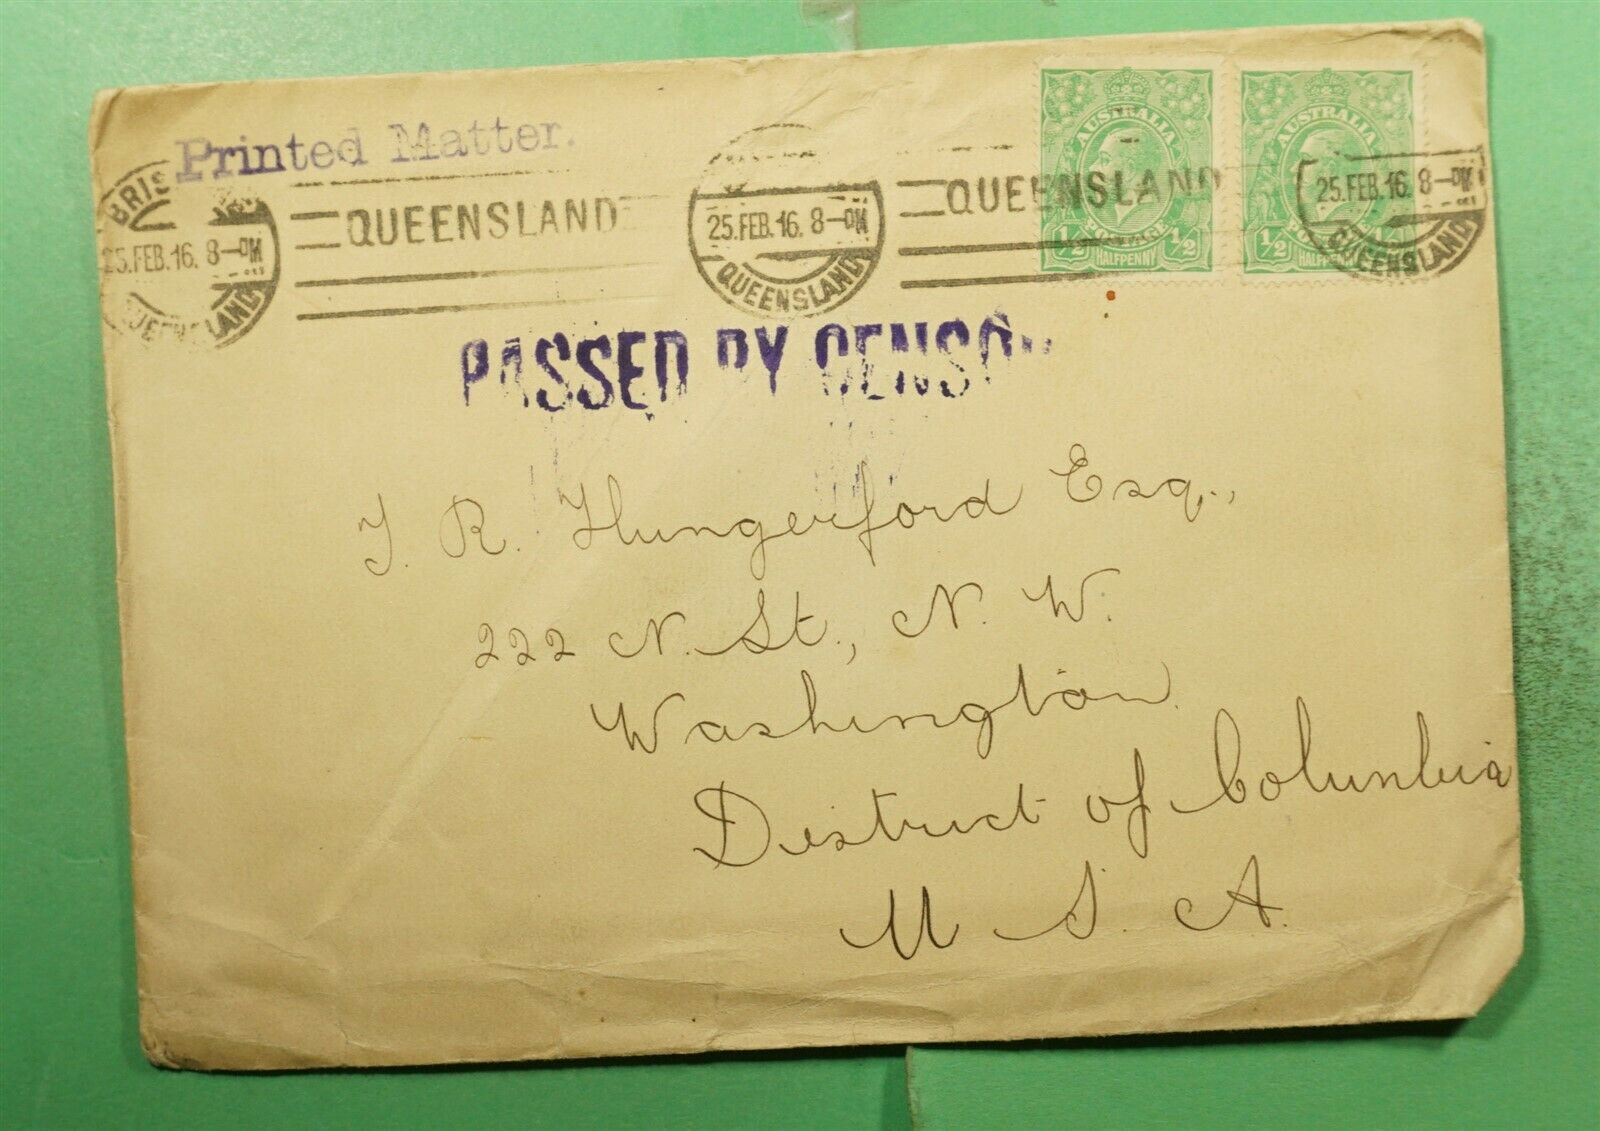 Printed Matter.
BRIS
25.FEB.16. 8-PM
QUEENSLAND
QUEENSLAND
25.FEB.16. 8-PM
QUEENSLAND
QUEENSLAND
25.FEB.16. 8-PM
QUEENSLAND
AUSTRALIA
1/2 POSTAGE 1/2
HALFPENNY
AUSTRALIA
1/2
HALFPENNY
PASSED BY CENSOR
T. R. Hungerford Esq.,
222 N. St., N. W.
Washington
District of Columbia
U. S. A.